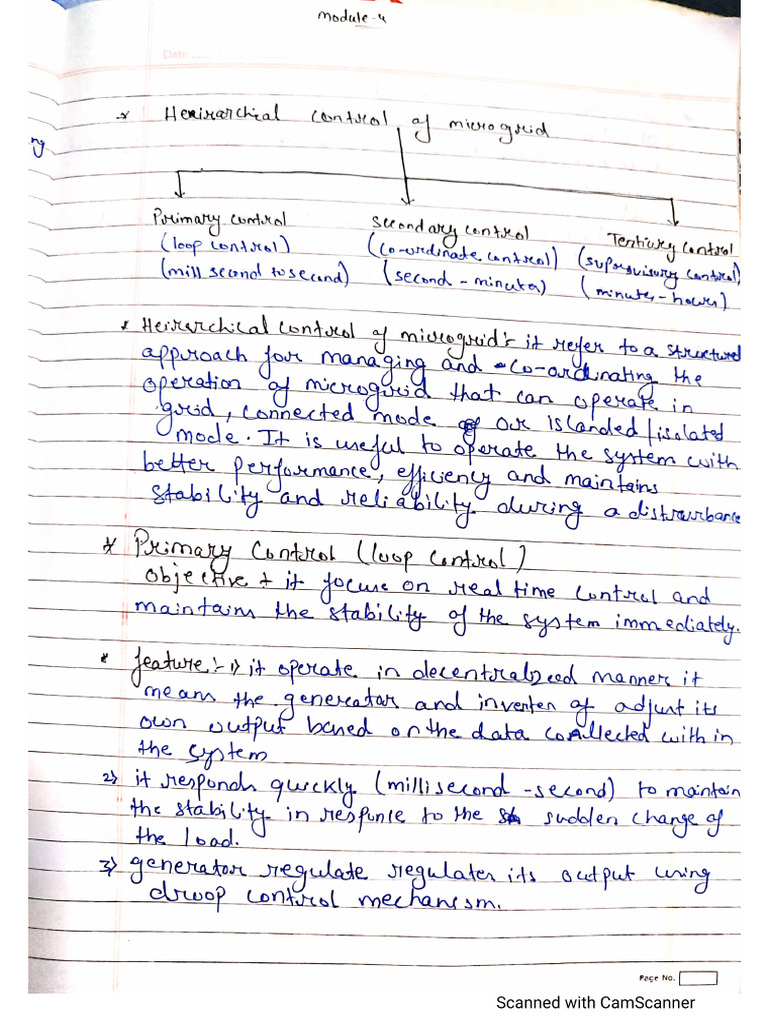 Module-4
Date
* Heirarchical control of microgrid
ng
Primary control
(loop control)
(mill second to second)
Secondary control
(co-ordinate control)
(second - minutes)
Tertiary control
(supervisory control)
(minutes-hours)
* Heirarchical control of microgrid :- it refer to a structured
approach for managing and co-ordinating the
operation of microgrid that can operate in
grid, connected mode or islanded/isolated
mode. It is useful to operate the system with
better performance, efficiency and maintains
stability and reliability during a disturbance
* Primary Control (loop control)
objective + it focus on real time control and
maintains the stability of the system immediately.
* feature :- 1) it operate in decentralized manner it
means the generator and inverter of adjust its
own output based on the data collected with in
the system
2) it responds quickly (millisecond-second) to maintain
the stability in response to the sudden change of
the load.
3) generator regulate regulates its output using
droop control mechanism.
Page No.
Scanned with CamScanner